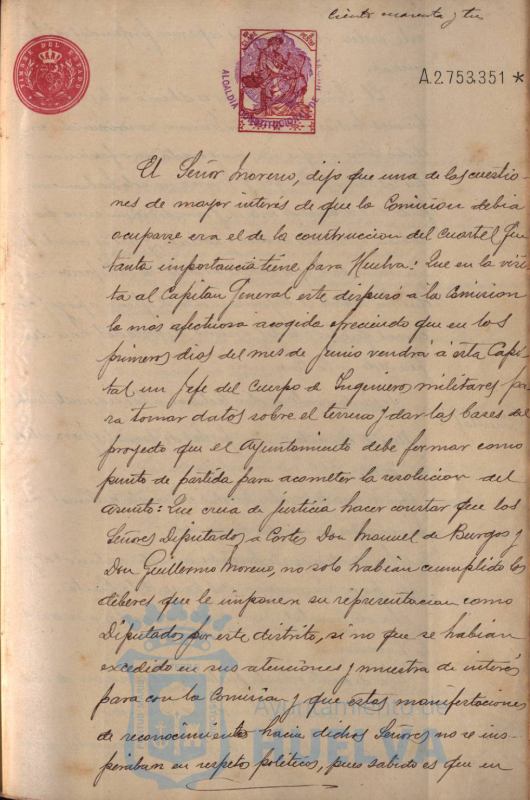 Ciento cuarenta y tres
TIMBRE DEL ESTADO
ALCALDIA CONSTITUCIONAL DE HUELVA
A.2.753.351 *
El Señor Moreno, dijo que una de las cuestio-
nes de mayor interés de que la Comision debia
ocuparse era el de la construccion del cuartel que
tanta importancia tiene para Huelva: Que en la visi-
ta al Capitan General este dispusó á la Comision
la más afectuosa acogida ofreciendo que en los
primeros dias del mes de Junio vendrá á esta Capi-
tal un Jefe del Cuerpo de Ingenieros militares pa-
ra tomar datos sobre el terreno y dar las bases del
proyecto que el Ayuntamiento debe formar como
punto de partida para acometer la resolucion del
asunto: Que creia de justicia hacer constar que los
Señores Diputados a Cortes Don Manuel de Burgos y
Don Guillermo Moreno, no solo habian cumplido los
deberes que le imponen su representacion como
Diputados por este distrito, si no que se habian
excedido en sus atenciones y muestra de interés
para con la Comision y que estas manifestaciones
de reconocimiento hacia dichos Señores no se ins-
piraban en respeto politico, pues sabido es que en
Ayuntamiento de
HUELVA